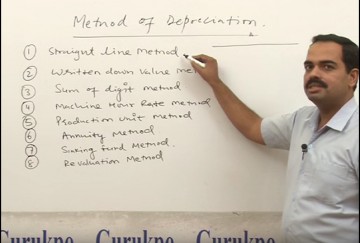 Method of Depreciation.
① Straight line Method
② Written down Value me
③ Sum of digit method
④ Machine Hour Rate method
⑤ Production unit method
⑥ Annuity Method
⑦ Sinking fund Method.
⑧ Revaluation Method
Gurukpo Gurukpo Gurukpo